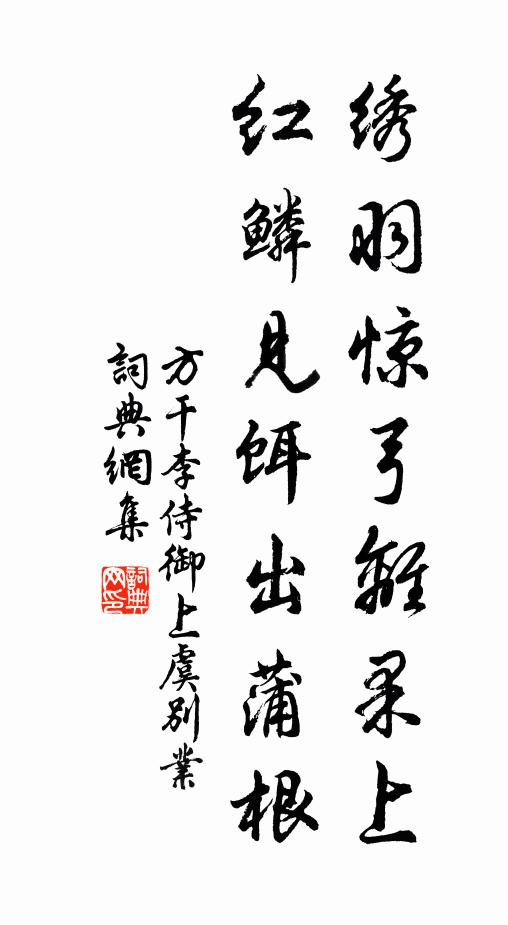 绣羽惊弓離果上
红鱗見饵出蒲根
方干李侍御上虞别業
詞典網集
詞典网印